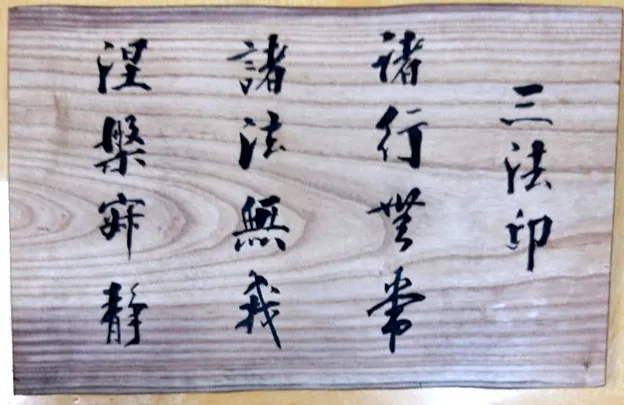 三法印
諸行無常
諸法無我
涅槃寂静